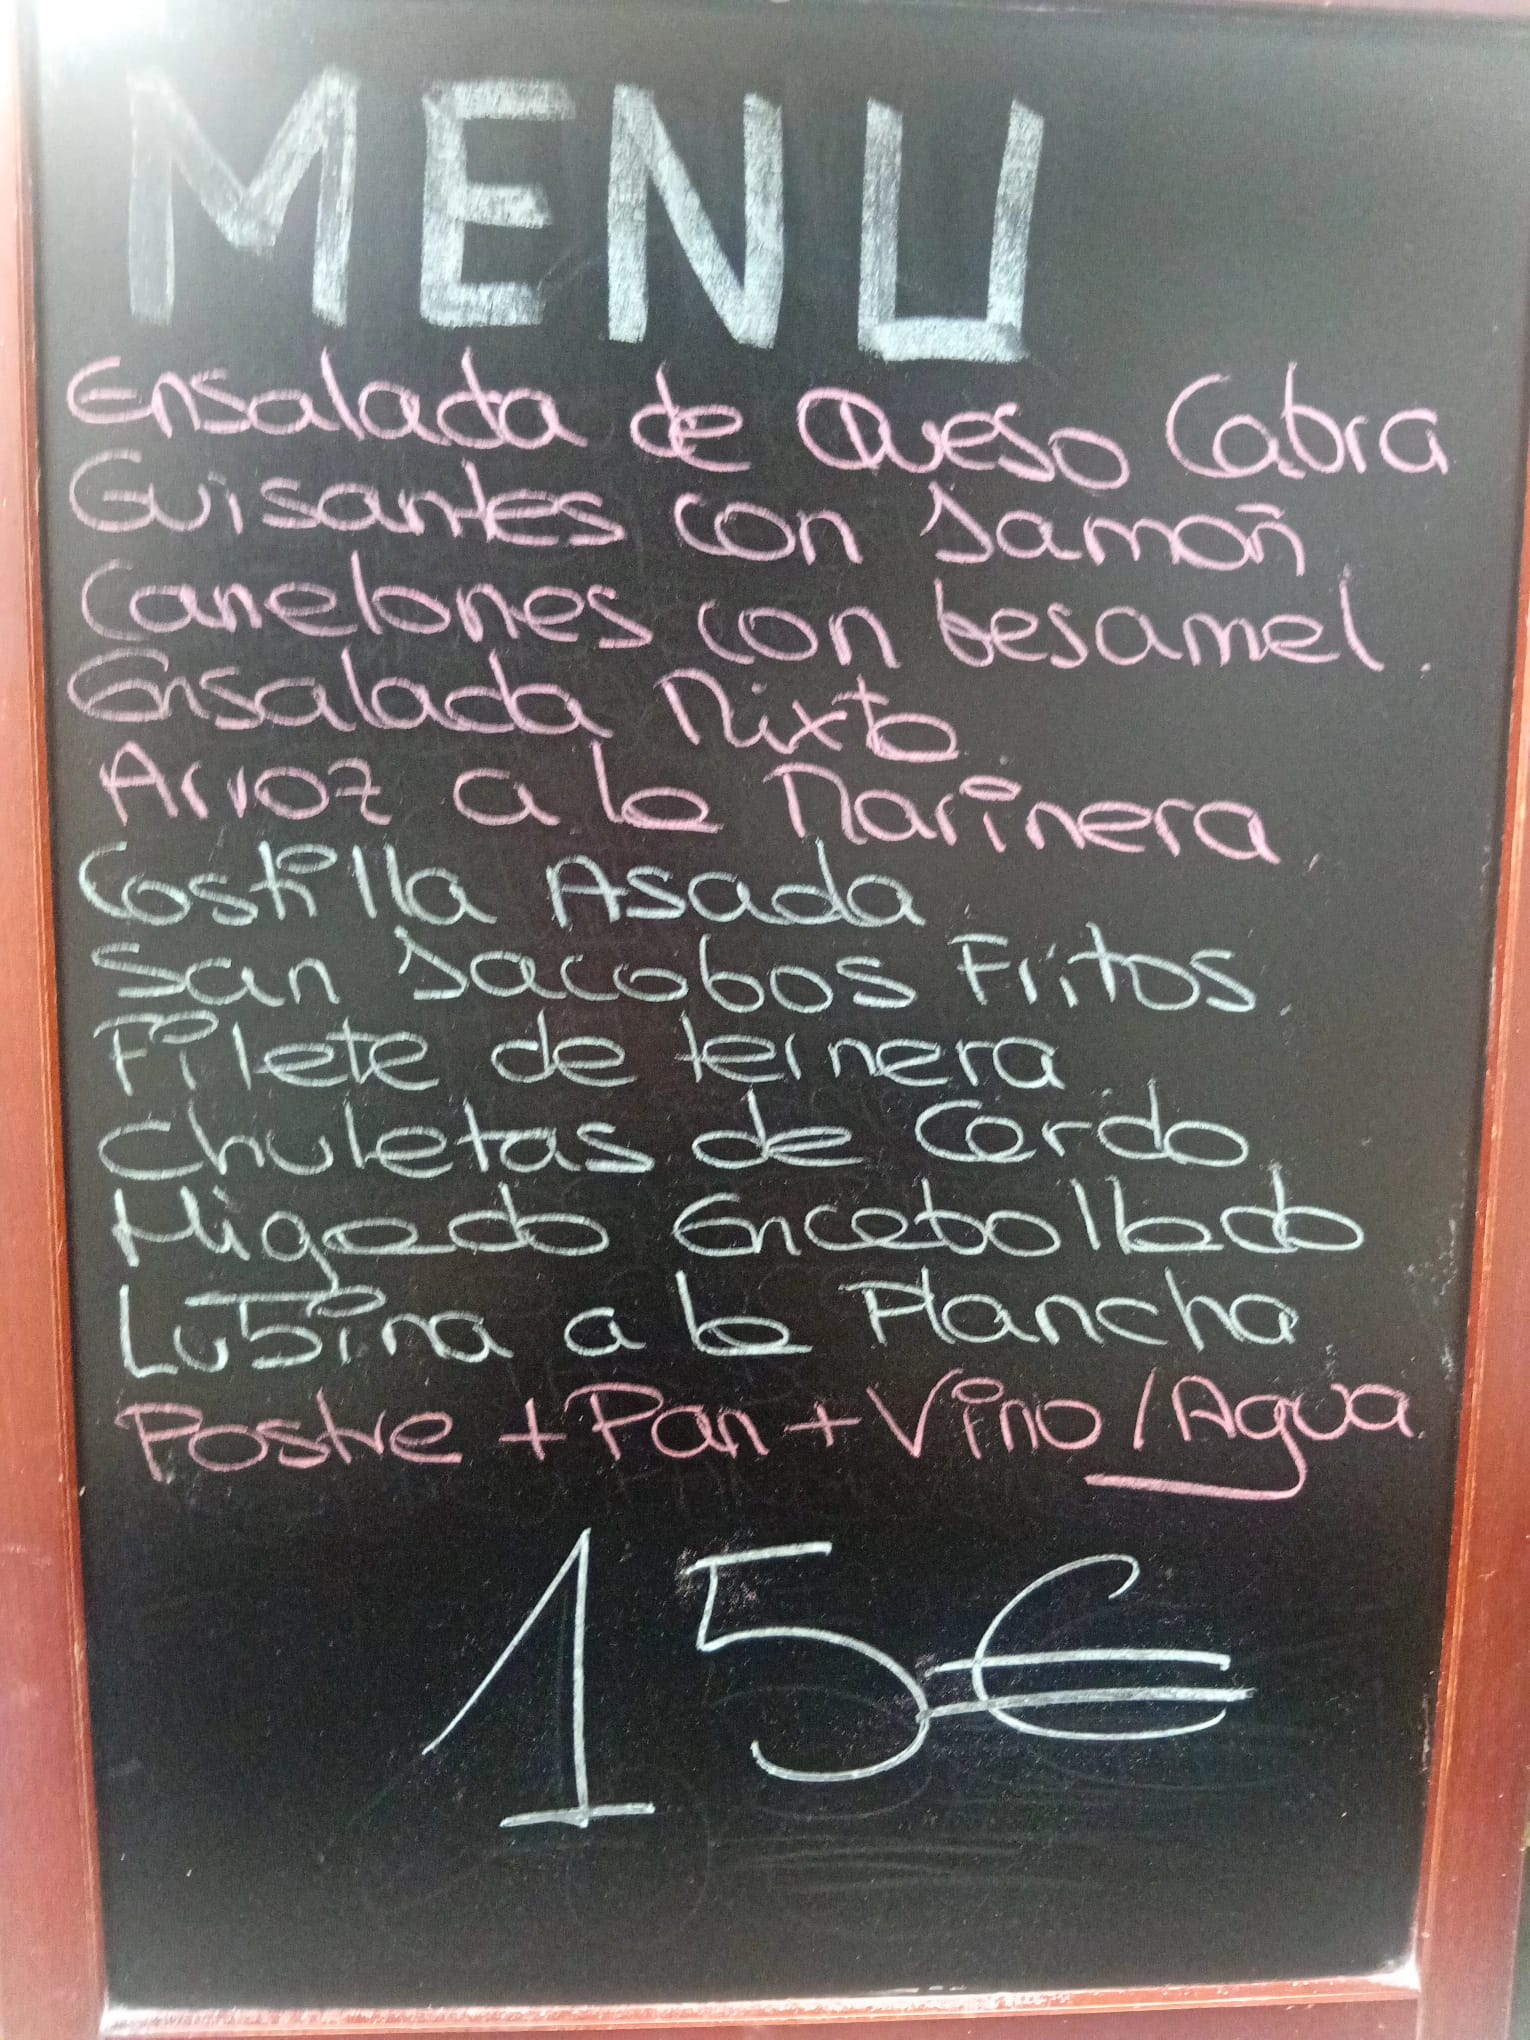 MENU
Ensalada de Queso Cabra
Guisantes con Jamoñ
Canelones con besamel.
Ensalada Mixta
Arroz a la Marinera.
Costilla Asada
San Jacobos Fritos
Filete de ternera
Chuletas de Cerdo
Higado Encebollado
Lubina a la Plancha
Postre + Pan + Vino / Agua
15€